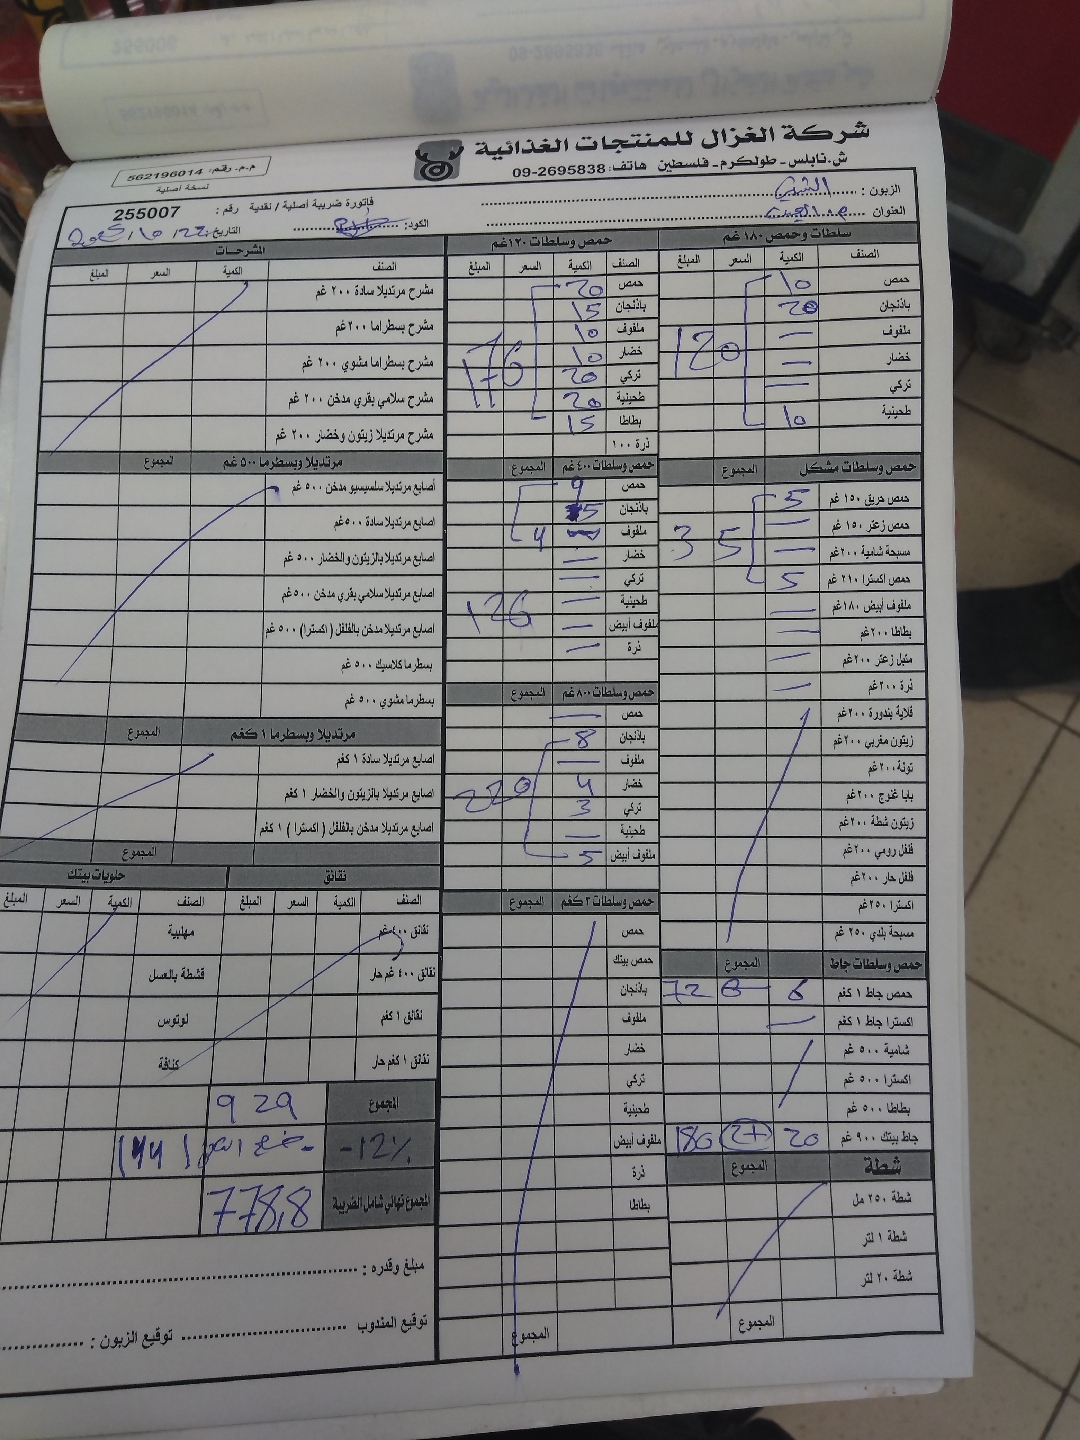 شركة الغزال للمنتجات الغذائية
ش.نابلس - طولكرم - فلسطين هاتف: 2695838-09
م.م. رقم: 562196014
نسخة أصلية
الزبون :
العنوان
فاتورة ضريبة أصلية / نقدية رقم : 255007
الكود: التاريخ:
سلطات وحمص ١٨٠ غم
الصنف الكمية السعر المبلغ
حمص 10
باذنجان 20
ملفوف —
خضار —
تركي —
طحينية 10
120
حمص وسلطات مشكل المجموع
حمص حريق ١٥٠ غم 5
حمص زعتر ١٥٠ غم —
مسبحة شامية ٢٠٠غم —
حمص اكسترا ٢١٠ غم 5
35
ملفوف أبيض ١٨٠غم —
بطاطا ٢٠٠غم —
متبل زعتر ٢٠٠غم —
ذرة ٢٠٠غم —
قلاية بندورة ٢٠٠غم
زيتون مغربي ٢٠٠غم
تونة ٢٠٠غم
بابا غنوج ٢٠٠غم
زيتون شطة ٢٠٠غم
فلفل رومي ٢٠٠غم
فلفل حار ٢٠٠غم
اكسترا ٢٥٠غم
مسبحة بلدي ٢٥٠ غم
حمص وسلطات جاط المجموع
حمص جاط ١ كغم 6 72
اكسترا جاط ١ كغم —
شامية ٥٠٠ غم
اكسترا ٥٠٠ غم
بطاطا ٥٠٠ غم
جاط بيتك ٩٠٠ غم 20 2+ 180
شطة المجموع
شطة ٢٥٠ مل
شطة ١ لتر
شطة ٢٠ لتر
المجموع
حمص وسلطات ١٢٠غم
الصنف الكمية السعر المبلغ
حمص 20
باذنجان 15
ملفوف 10
خضار 10
تركي 20
طحينية 20
بطاطا 15
176
ذرة ١٠٠
حمص وسلطات ٤٠٠غم المجموع
حمص 9
باذنجان 5
ملفوف 4
خضار —
تركي —
طحينية —
ملفوف أبيض —
ذرة —
126
حمص وسلطات ٨٠٠غم المجموع
حمص —
باذنجان 8
ملفوف —
خضار 4
تركي 3
طحينية —
ملفوف أبيض 5
220
حمص وسلطات ٣كغم المجموع
حمص
حمص بيتك
باذنجان
ملفوف
خضار
تركي
طحينية
ملفوف أبيض
ذرة
بطاطا
المجموع
المشرحات
الصنف الكمية السعر المبلغ
مشرح مرتديلا سادة ٢٠٠ غم
مشرح بسطراما ٢٠٠غم
مشرح بسطراما مشوي ٢٠٠ غم
مشرح سلامي بقري مدخن ٢٠٠ غم
مشرح مرتديلا زيتون وخضار ٢٠٠ غم
مرتديلا وبسطرما ٥٠٠غم المجموع
أصابع مرتديلا سلسيسيو مدخن ٥٠٠ غم
اصابع مرتديلا سادة ٥٠٠غم
اصابع مرتديلا بالزيتون والخضار ٥٠٠ غم
اصابع مرتديلا سلامي بقري مدخن ٥٠٠غم
اصابع مرتديلا مدخن بالفلفل ( اكسترا ) ٥٠٠ غم
بسطرما كلاسيك ٥٠٠ غم
بسطرما مشوي ٥٠٠ غم
مرتديلا وبسطرما ١كغم المجموع
اصابع مرتديلا سادة ١ كغم
اصابع مرتديلا بالزيتون والخضار ١ كغم
اصابع مرتديلا مدخن بالفلفل ( اكسترا ) ١ كغم
المجموع
نقانق
الصنف الكمية السعر المبلغ
نقانق ٤٠٠ غم
نقانق ٤٠٠ غم حار
نقانق ١ كغم
نقانق ١ كغم حار
حلويات بيتك
الصنف الكمية السعر المبلغ
مهلبية
قشطة بالعسل
لوتوس
كنافة
المجموع 929
-12%
المجموع نهائي شامل الضريبة 778,8
مبلغ وقدره :
توقيع المندوب توقيع الزبون :